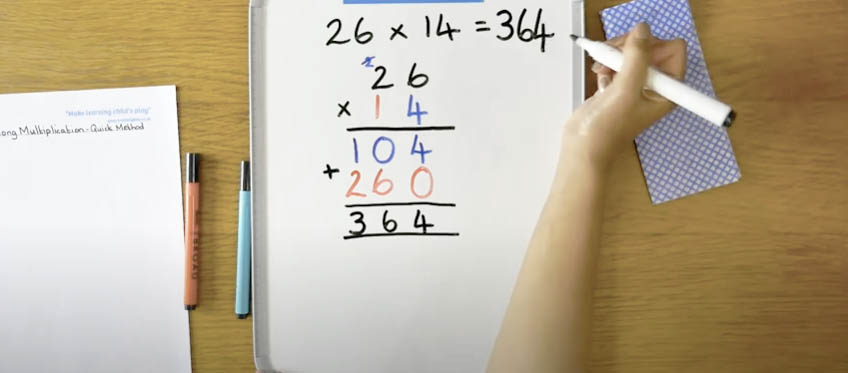 "Make learning child's play"
ong Multiplication - Quick Method
26 x 14 = 364
2
26
x 14
104
+ 260
364